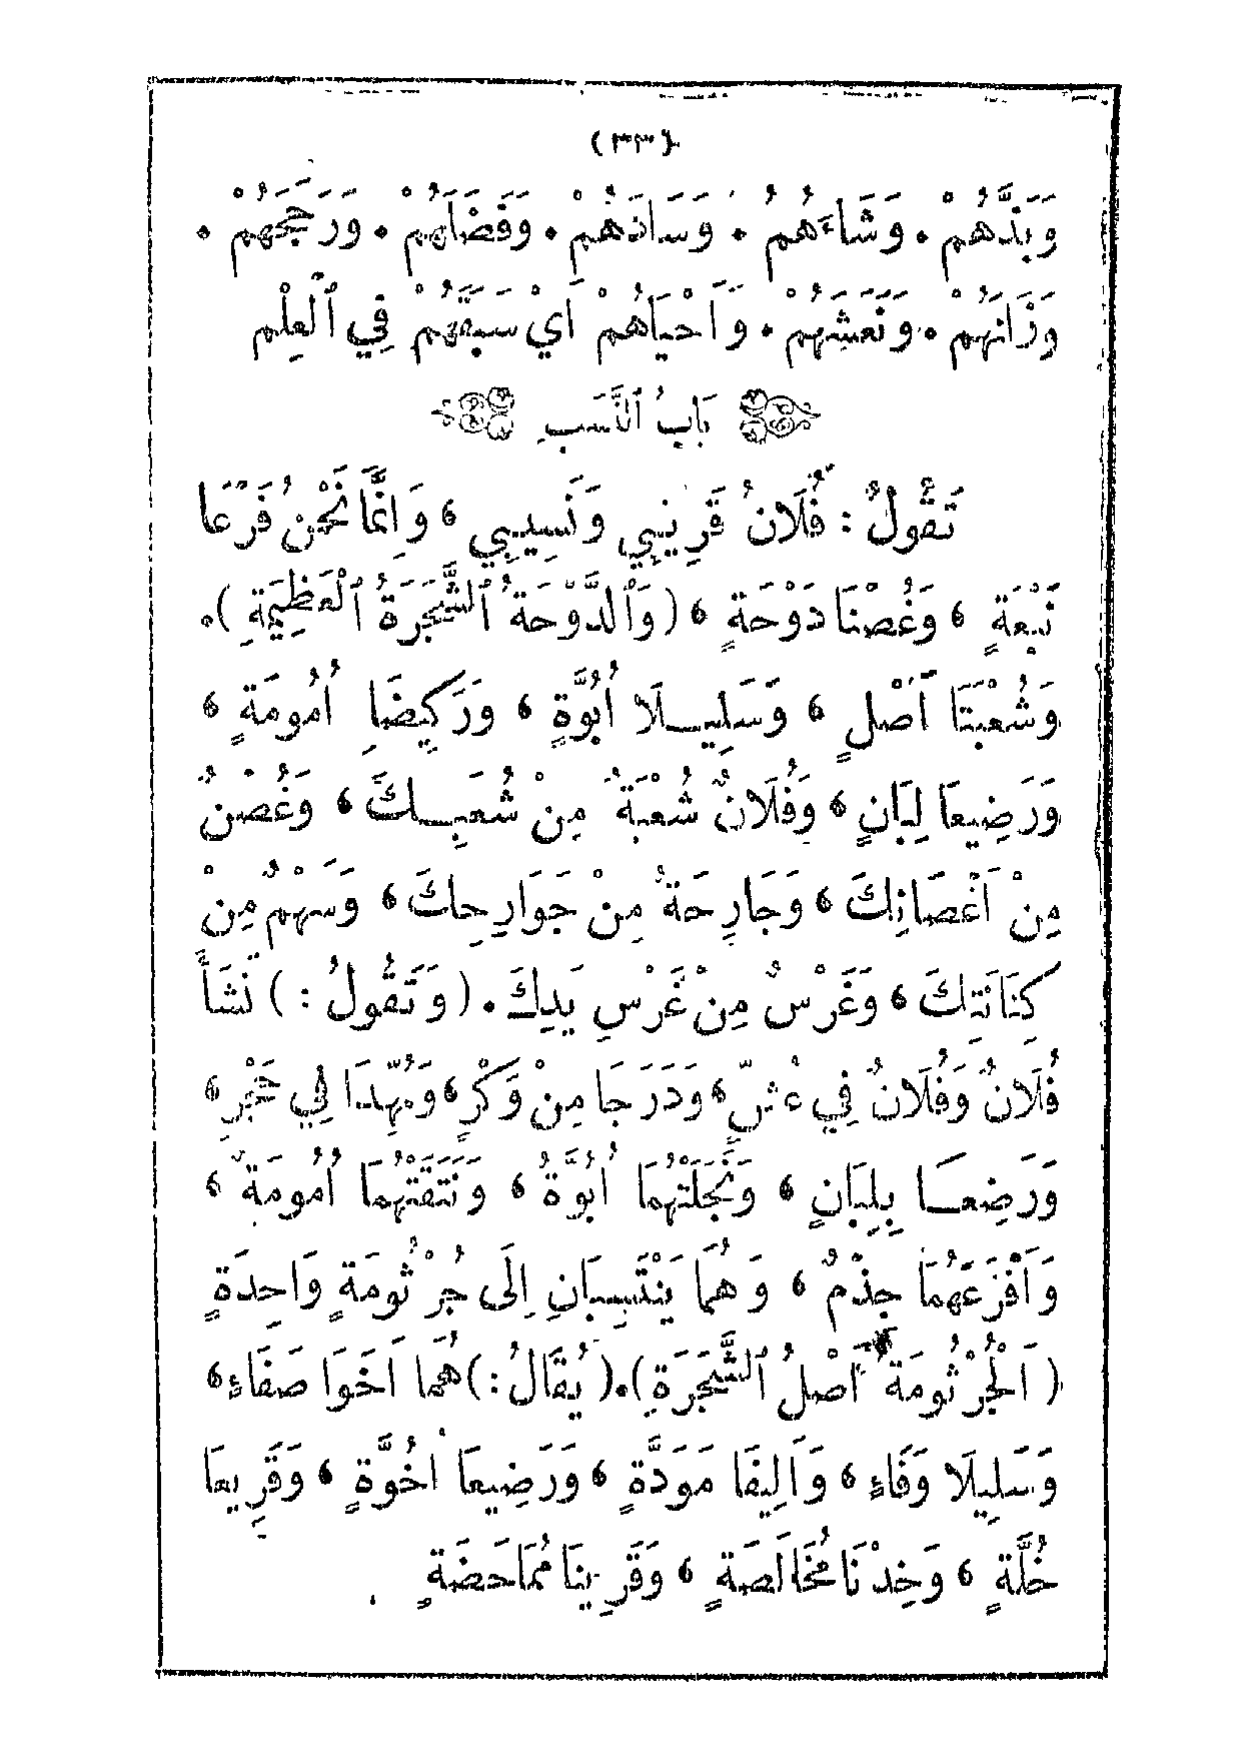 (٣٣)
وَبَذَّهُمْ . وَشَاءَهُمُ . وَسَادَهُمْ . وَفَضَلَهُمْ . وَرَجَحَهُمْ .
وَزَانَهُمْ . وَنَعَشَهُمْ . وَأَحْيَاهُمْ أَيْ سَبَقَهُمْ فِي ٱلْعِلْمِ
بَابُ ٱلنَّسَبِ
تَقُولُ : فُلَانٌ قَرِيبِي وَنَسِيبِي ، وَإِنَّمَا نَحْنُ فَرْعَا
نَبْعَةٍ ، وَغُصْنَا دَوْحَةٍ ، (وَٱلدَّوْحَةُ ٱلشَّجَرَةُ ٱلْعَظِيمَةِ).
وَشُعْبَتَا أَصْلٍ ، وَسَلِيلَا أُبُوَّةٍ ، وَرَكِيضَا أُمُومَةٍ ،
وَرَضِيعَا لِبَانٍ ، وَفُلَانٌ شُعْبَةٌ مِنْ شُعَبِكَ ، وَغُصْنٌ
مِنْ أَغْصَانِكَ ، وَجَارِحَةٌ مِنْ جَوَارِحِكَ ، وَسَهْمٌ مِنْ
كِنَانَتِكَ ، وَغَرْسٌ مِنْ غَرْسِ يَدِكَ . (وَتَقُولُ :) نَشَأَ
فُلَانٌ وَفُلَانٌ فِي عُشٍّ ، وَدَرَجَا مِنْ وَكْرٍ ، وَمُهِّدَا فِي حَجْرٍ ،
وَرَضِعَا بِلِبَانٍ ، وَنَجَلَتْهُمَا أُبُوَّةٌ ، وَنَتَقَتْهُمَا أُمُومَةٌ ،
وَأَفْرَعَهُمَا جِذْمٌ ، وَهُمَا يَنْتَسِبَانِ إِلَى جُرْثُومَةٍ وَاحِدَةٍ
(أَلْجُرْثُومَةُ أَصْلُ ٱلشَّجَرَةِ). (يُقَالُ :) هُمَا أَخَوَا صَفَاءٍ ،
وَسَلِيلَا وَفَاءٍ ، وَأَلِيفَا مَوَدَّةٍ ، وَرَضِيعَا أُخُوَّةٍ ، وَقَرِيعَا
خُلَّةٍ ، وَخِدْنَا مُخَالَصَةٍ ، وَقَرِينَا مُمَاحَضَةٍ .